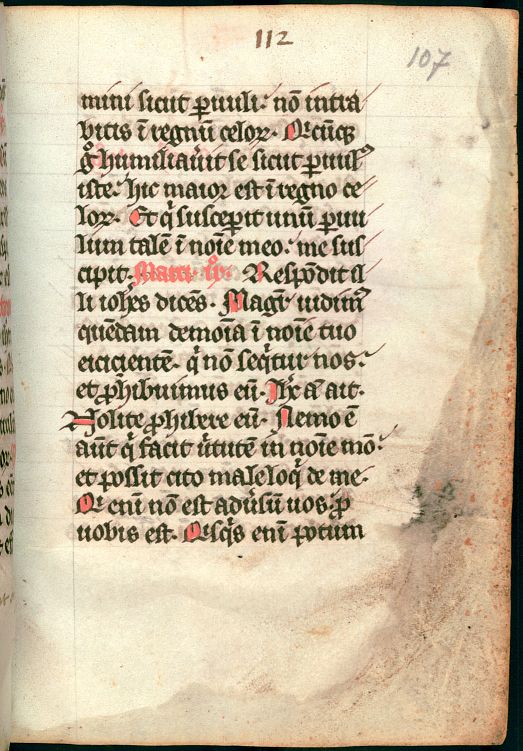 112
107
mini sicut ꝑuuli· nō intra
bitis ī regnū celoꝝ· Qͥcūqꝫ
gͦ humiliau̾it se sicut ꝑuulꝰ
iste· hic maior est ī regno ce
loꝝ· Et qͥ susceperit unū ꝑuu
lum talē ī noīe meo· me sus
cipit· Marci· ixͦ· Respōdit il
li ioh̄es dicēs· Magr̄· uidimꝰ
quēdam demoīa ī noīe tuo
eicientē· qͥ nō seqͥtur nos·
et ꝓhibuimus eū· Ih̄c aͫ ait·
Nolite ꝓhibere eū· Nemo ē
aūt qͥ facit u̾tutē in noīe mō·
et possit cito male loqͥ de me·
Qͥ enī nō est adu̾sū uos· ꝓ
uobis est· Qͥsqͥs enī potum